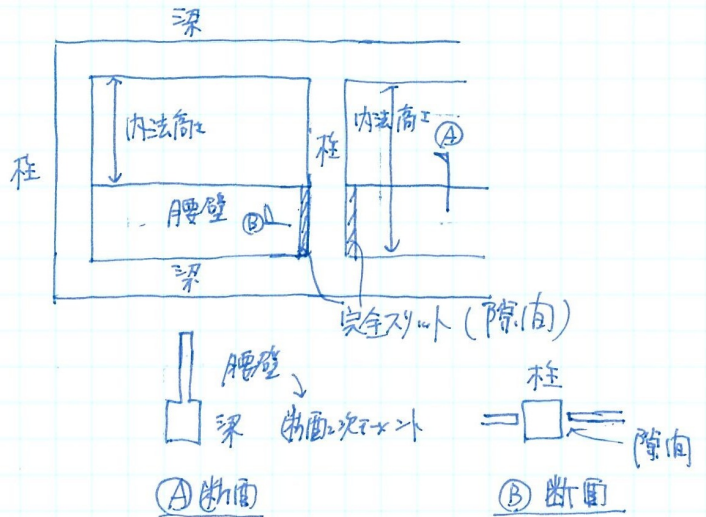 梁
内法高さ
内法高さ
Ⓐ
柱
柱
腰壁
Ⓑ
梁
完全スリット(隙間)
腰壁
梁
断面2次モーメント
柱
隙間
Ⓐ断面
Ⓑ断面